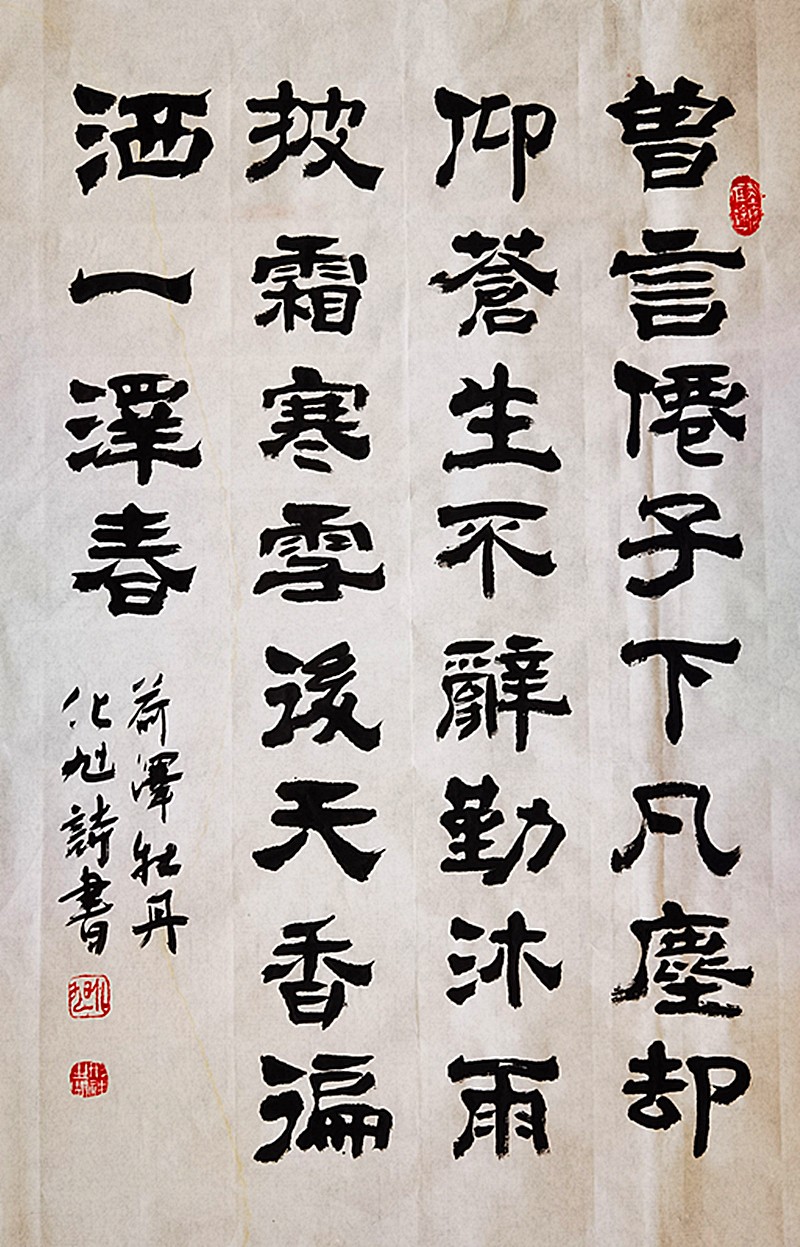 曽言僊子下凡塵却
仰蒼生不辭勤沐雨
披霜寒雪後天香徧
洒一澤春
荷澤牡丹
化旭詩書